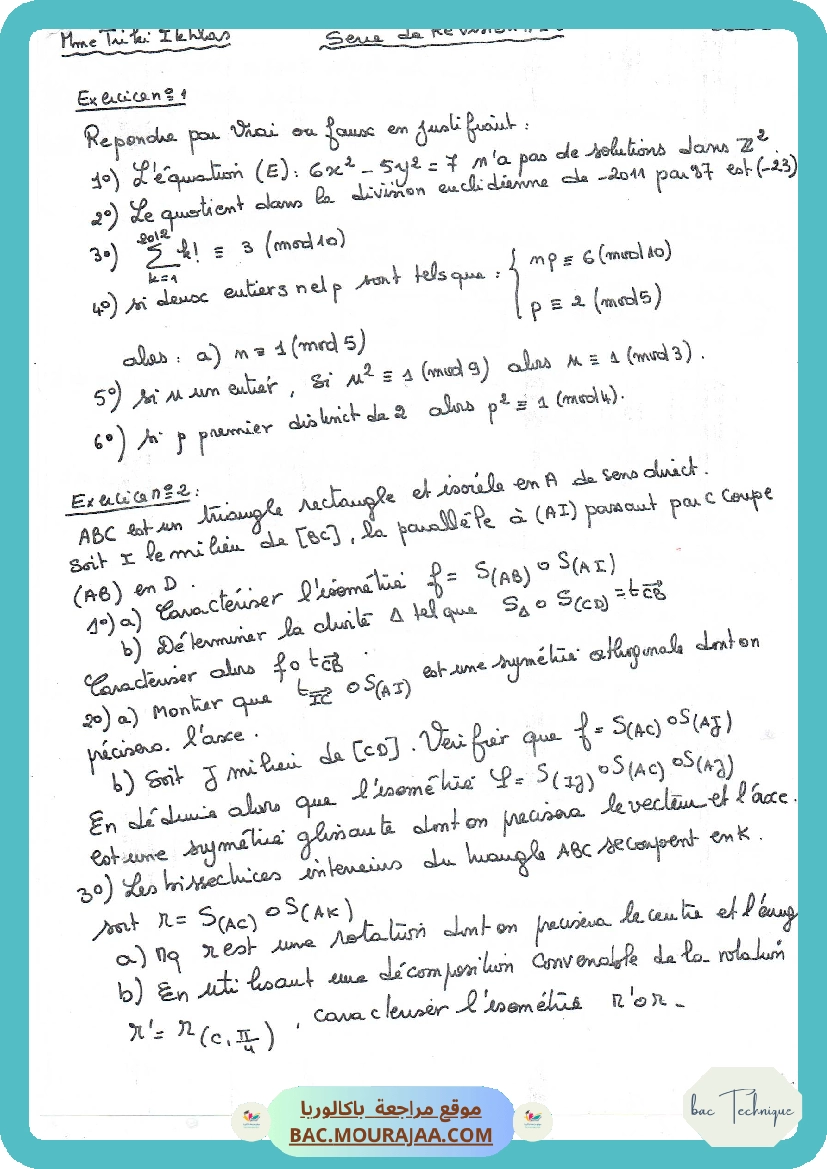 Mme Triki Ikhlas
Serie de Revision
Exercice n=º1
Repondre par Vrai ou faux en justifiant :
1º) L'équation (E): 6x² - 5y² = 7 n'a pas de solutions dans ℤ².
2º) Le quotient dans la division euclidienne de -2011 par 87 est (-23)
3º) 2012 Σ k=1 k! ≡ 3 (mod 10)
4º) si deux entiers n et p sont tels que : { np ≡ 6 (mod 10)
p ≡ 2 (mod 5)
alors : a) n ≡ 1 (mod 5)
5º) si n un entier, si n² ≡ 1 (mod 9) alors n ≡ 1 (mod 3).
6º) si p premier distinct de 2 alors p² ≡ 1 (mod 4).
Exercice n=º2 :
ABC est un triangle rectangle et isocèle en A de sens direct.
Soit I le milieu de [BC], la parallèle à (AI) passant par C coupe
(AB) en D.
1º) a) Caractériser l'isométrie f = S(AB) o S(AI)
b) Déterminer la droite Δ tel que SΔ o S(CD) = t→CB
Caractériser alors f o t→CB .
2º) a) Montrer que t→IC o S(AI) est une symétrie orthogonale dont on
précisera l'axe.
b) Soit J milieu de [CD]. Vérifier que f = S(AC) o S(AJ)
En déduire alors que l'isométrie φ = S(IJ) o S(AC) o S(AJ)
est une symétrie glissante dont on precisera le vecteur et l'axe.
3º) Les bissectrices interieurs du triangle ABC se coupent en K.
soit r = S(AC) o S(AK)
a) Mq r est une rotation dont on precisera le centre et l'ang
b) En utilisant une décomposition convenable de la rotation
r' = r(C, π/4) , caracteriser l'isométrie r' o r .
bac Technique
موقع مراجعة باكالوريا
BAC.MOURAJAA.COM